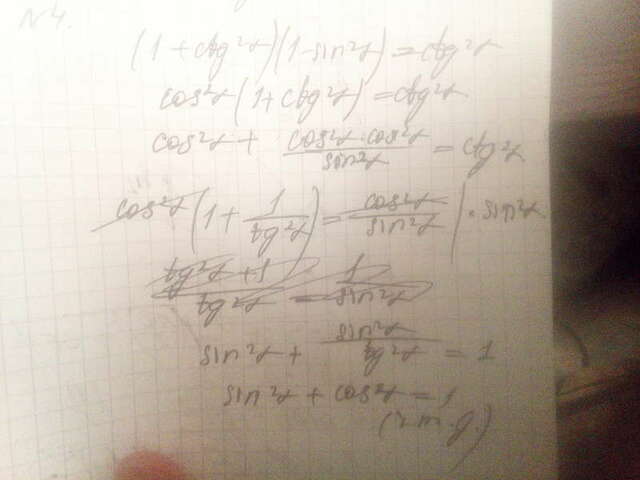 N4.
(1 + ctg²α)(1 - sin²α) = ctg²α
cos²α(1 + ctg²α) = ctg²α
cos²α + cos²α · cos²α / sin²α = ctg²α
cos²α(1 + 1 / tg²α) = cos²α / sin²α | · sin²α
tg²α + 1 / tg²α = 1 / sin²α
sin²α + sin²α / tg²α = 1
sin²α + cos²α = 1
(ч.т.д.)